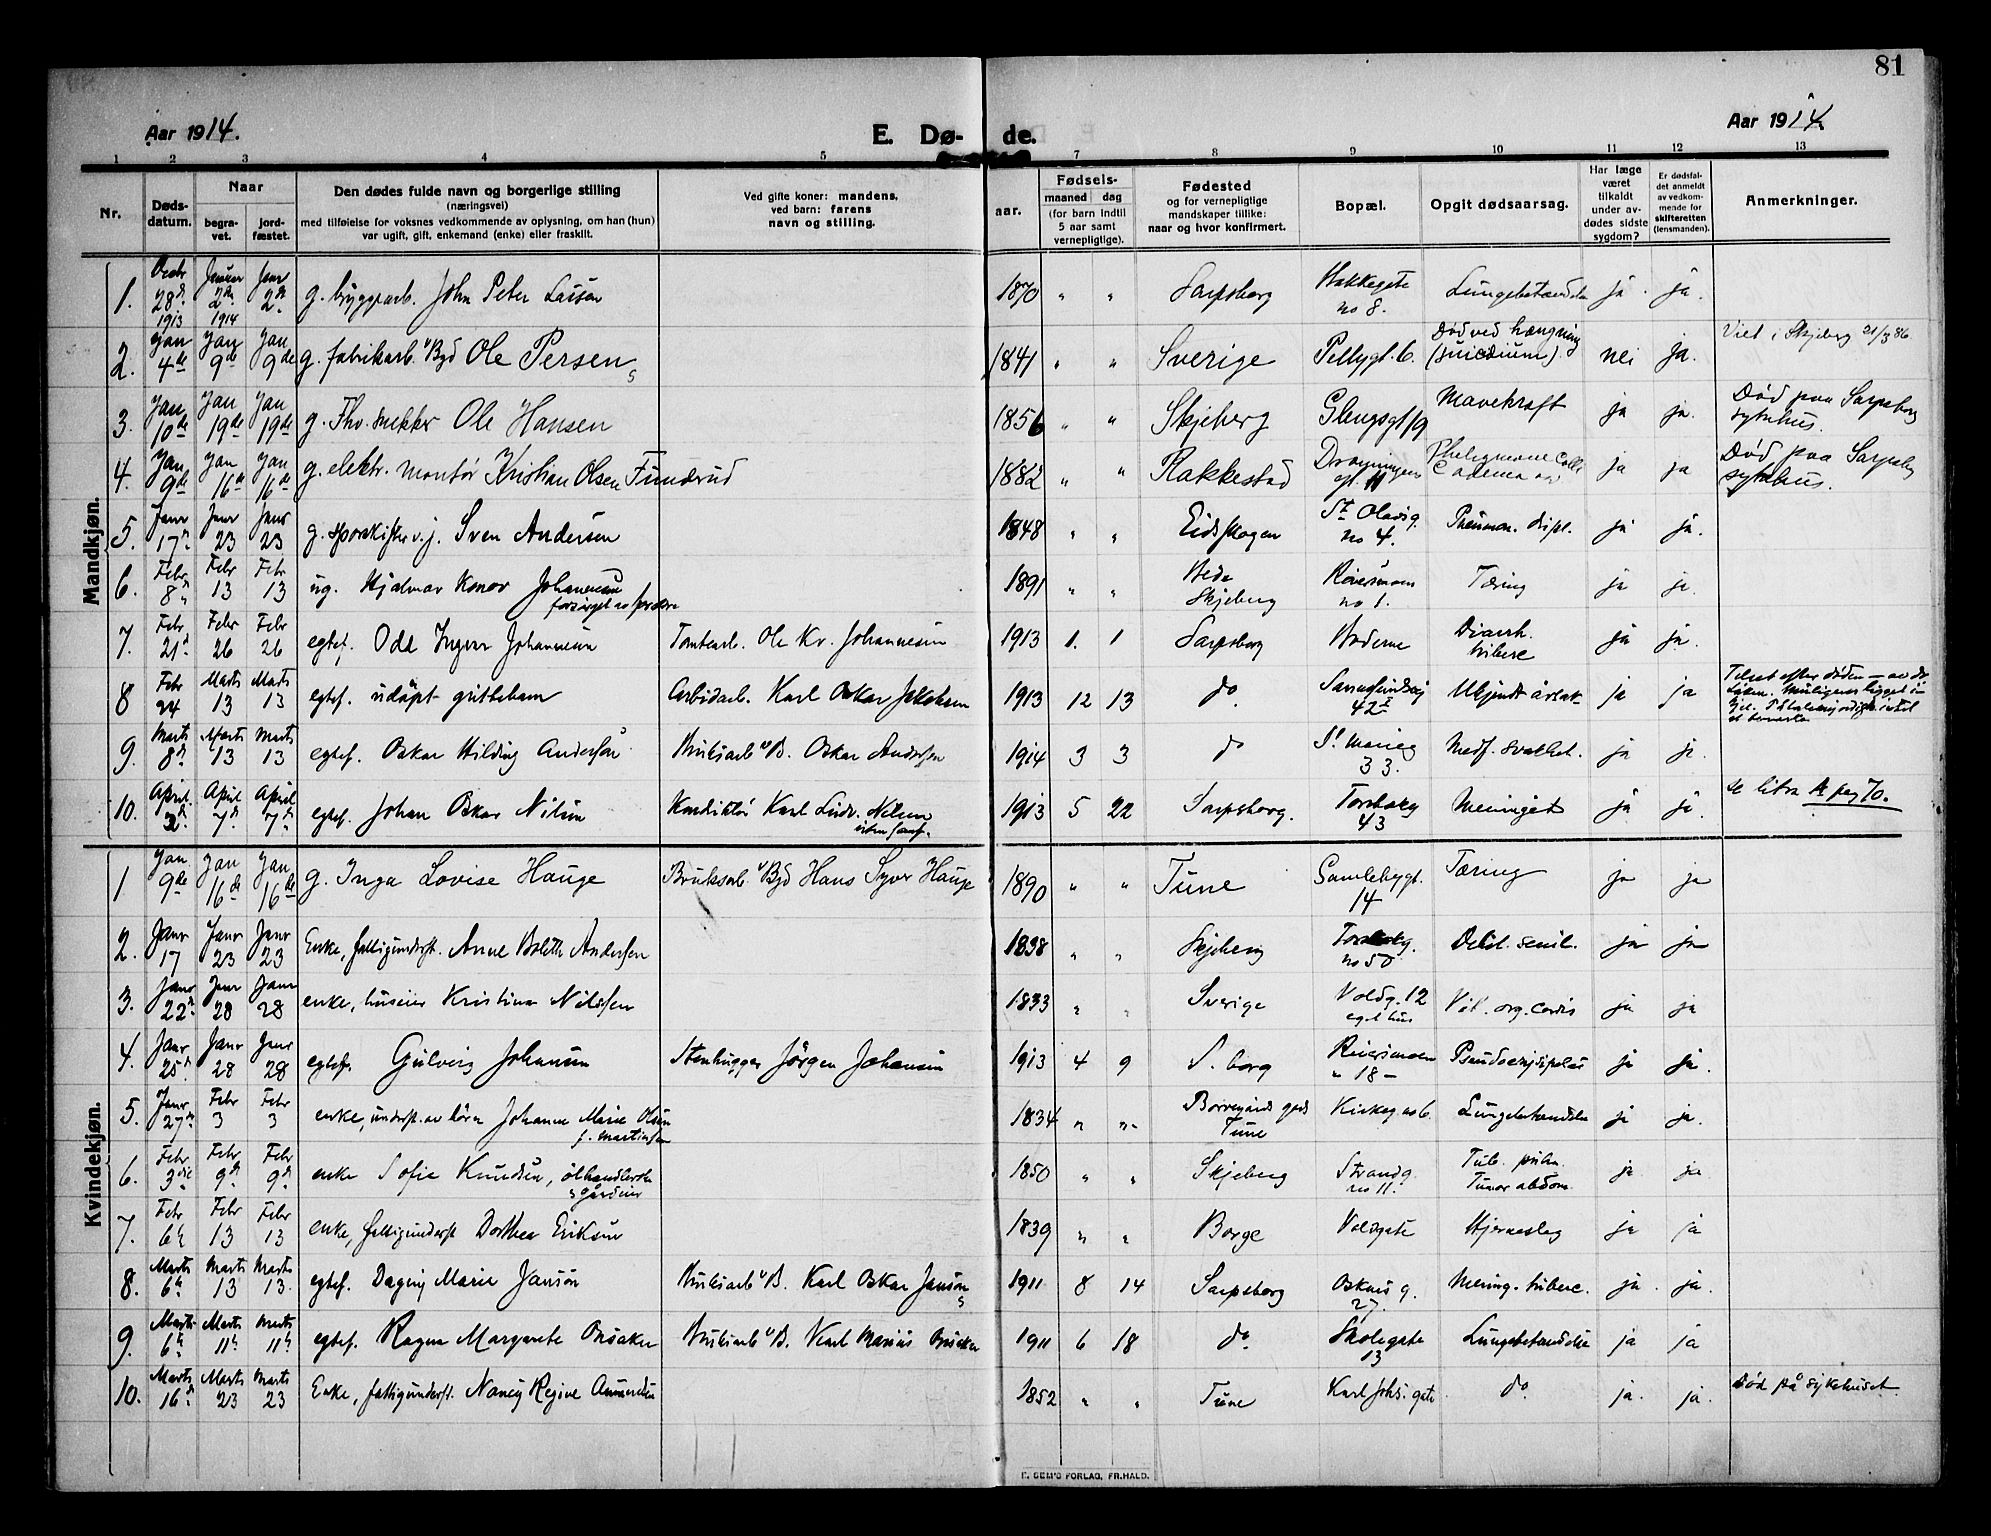 81
Aar 1914.
E. Dø- de.
Aar 1914.
1 2 3 4 5 7 8 9 10 11 12 13
Nr.
Døds-
datum.
Naar
begra-
vet.
jord-
fæstet.
Den dødes fulde navn og borgerlige stilling
(næringsvei)
med tilføielse for voksnes vedkommende av oplysning, om han (hun)
var ugift, gift, enkemand (enke) eller fraskilt.
Ved gifte koner: mandens,
ved barn: farens
navn og stilling.
Fødsels-
aar.
maaned dag
(for barn indtil
5 aar samt
vernepligtige).
Fødested
og for vernepligtige
mandskaper tillike:
naar og hvor konfirmert.
Bopæl.
Opgit dødsaarsag.
Har læge
været
tilkaldt
under av-
dødes sidste
sygdom?
Er dødsfal-
det anmeldt
av vedkom-
mende for
skifteretten
(lensmanden).
Anmerkninger.
Mandkjøn.
1. 28de 1913 Januar 2den 1914 Janr 2de g. byggarb. John Peter Lasson 1870 " " Sarpsborg Hakkegate no 8. Lungebetændelse ja. ja.
2. Jan 4de Jan 9de Jan 9de g. fabrikarb. v/Byd Ole Persen 1841 " " Sverige Pellygt. 6. Død ved hængning (suicidium). nei ja. Viet i Skjeberg 21/3 86
3. Jan 10de Jan 19de Jan 19de g. Fhv. snekker Ole Hansen 1856 " " Skjeberg Glengsgt 19 Mavekræft ja ja. Død paa Sarpsborg sykehus.
4. Jan 9de Jan 16de Jan 16de g. elektr. montør Kristian Olsen Funderud 1882 " " Rakkestad Dronningens gt. 11 ja ja Død paa Sarpsbg sykehus.
5. Janr 17de Janr 23 Janr 23 g. Sven Andersen 1848 " " Eidskogen St. Olavsg. no 4. Pneumon. dupl. ja ja.
6. Febr 8de Febr 13 Febr 13 ug. Hjalmar Konor Johannesen forsørget av foreldre 1891 " " Skjeberg no 1. Tæring ja ja.
7. Febr 21de Febr 26 Febr 26 egtef. Odd Ingvar Johannesen Tomtearb. Ole Kr. Johannesen 1913 1. 1 Sarpsborg Diarrh. ja ja.
8 Febr 24 Marts 13 Marts 13 egtef. udøpt guttebarn Arbidarb. Karl Oskar Jakobsen 1913 12 13 do. 42 Ukjendt årsak ja ja
9. Marts 8de Marts 13 Marts 13 egtef. Oskar Hilding Andersen Bruksarb v/B. Oskar Andersen 1914 3 3 do St. Marieg 33. Medf. svakhet. ja ja.
10. April 3de. April 7de. April 7de. egtef. Johan Oskar Nilsen Konduktør Karl Ludv. Nilsen 1913 5 22 Sarpsborg. Torsbekg 43 Meningit ja ja se litra A pag 70.
Kvindekjøn.
1 Jan 9de Jan 16de Jan 16de g. Inga Lovise Hauge Bruksarb. v/Byd Hans Syver Hauge 1890 " " Tune Gamlebygt. 14 Tæring ja ja
2. Janr 17 Janr 23 Janr 23 Enke, fattigunderst. Anne Bolette Andersen 1838 " " Skjeberg Torsbekg. no 50 Debil. senil. ja ja
3. Janr 22de Janr 28 Janr 28 enke, huseier Kristina Nilssen 1833 " " Sverige Voldg. 12 eget hus Vit. org. cordis ja ja
4. Janr 25de Janr 28 Janr 28 egtef. Gulveig Johansen Stenhugger Jørgen Johansen 1913 4 9 S.borg Reiersmoen " 18 - Pseudoerysipelas ja ja.
5. Janr 27de Febr 3 Febr 3 enke, underst. av børn Johanne Marie Olsen f. Martinsen 1834 " " Borregårds gods Tune Kirkeg. no 6. Lungebetændelse ja ja.
6. Febr 3die Febr 9de Febr 9de enke Sofie Knudsen, ølhandlerske gårdeier 1850 " " Skjeberg Strandg. no 11. Tub. pulm. Tumor abdom. ja ja
7. Febr 6te Febr 13 Febr 13 enke, fattigunderst Dorthea Eriksen 1839 " " Borge Voldgate Hjerneslag ja ja
8. Marts 6te Marts 13 Marts 13. egtef. Dagny Marie Jansøn Bruksarb v/B. Karl Oskar Jansøn 1911 8 14 Sarpsborg Oskars g. 27. Mening. tuberc. ja. ja.
9. Marts 6te Marts 11te Marts 11te egtef. Ragna Margrete Onsaker Bruksarb v/B. Karl Marius Onsaker 1911 6 18 do. Skolegate 13 Lungebetændelse ja ja
10. Marts 16de Marts 23 Marts 23 Enke, fattigunderst. Nancy Regine Amundsen 1852 " " Tune Karl Johs. gate do. ja. ja. Død på sykehuset.
E. SEM'S FORLAG, FR.HALD.